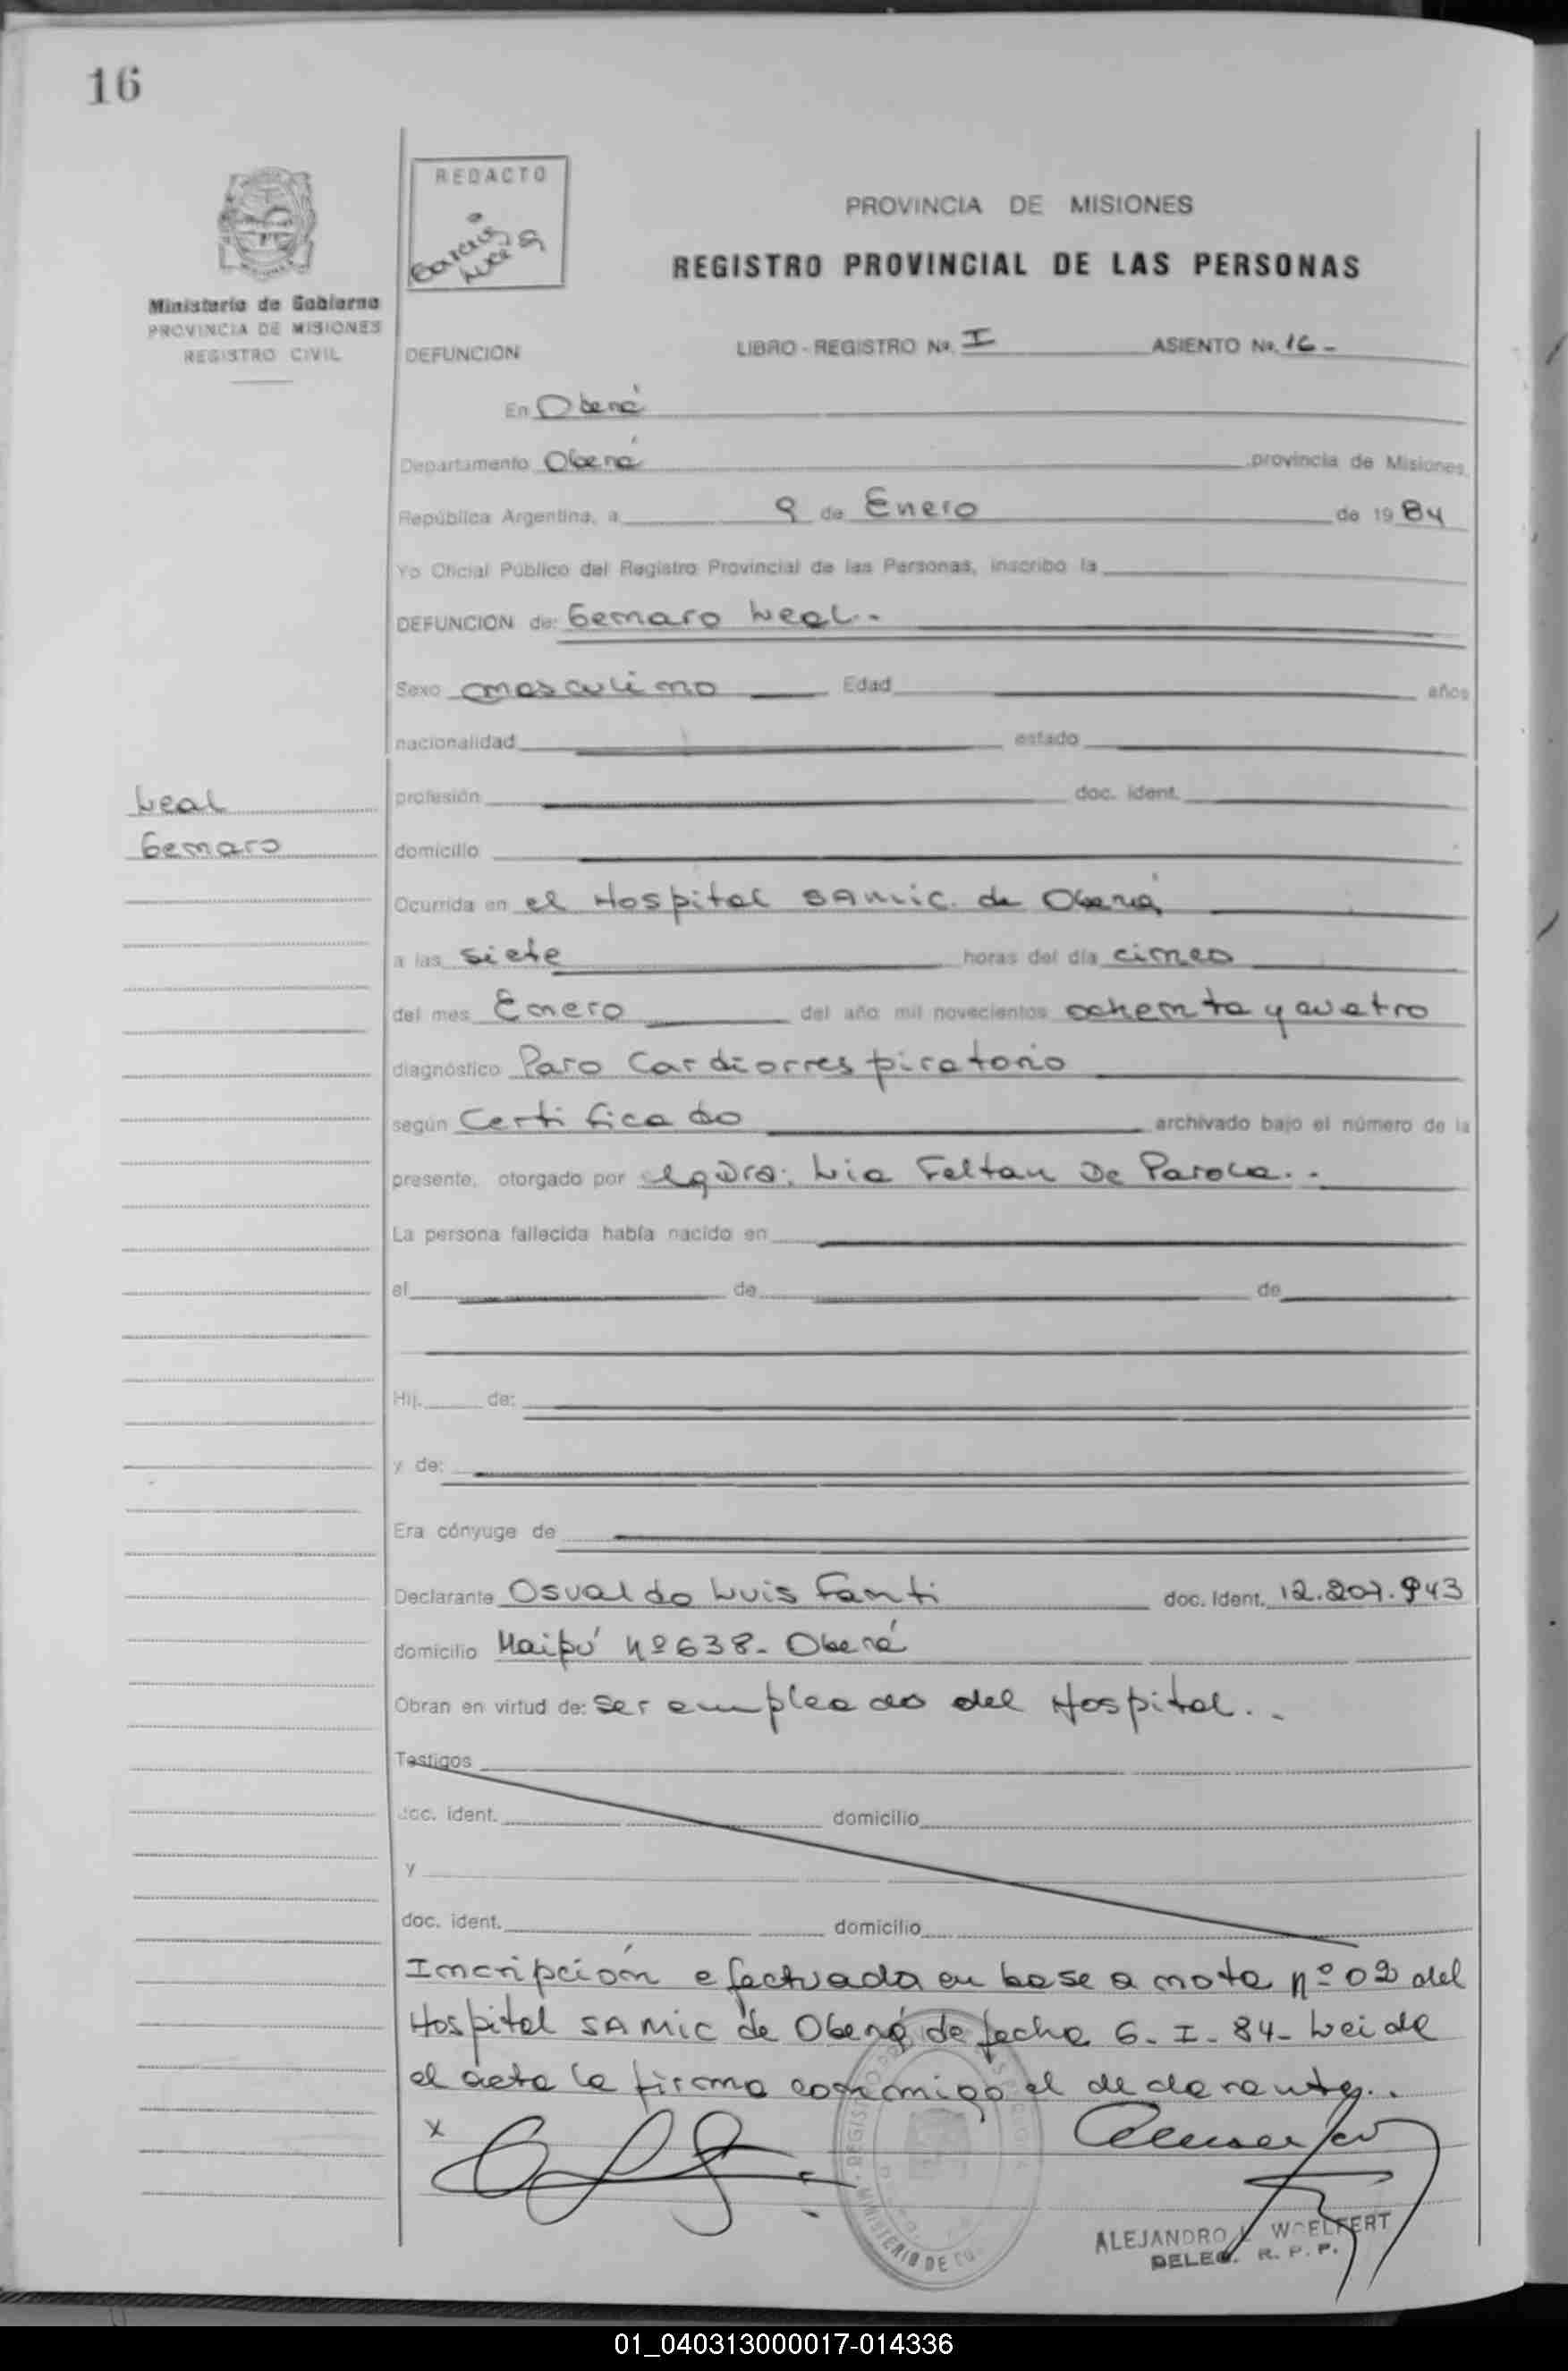 16
REDACTO
Garcia
PROVINCIA DE MISIONES
REGISTRO PROVINCIAL DE LAS PERSONAS
Ministerio de Gobierno
PROVINCIA DE MISIONES
REGISTRO CIVIL
DEFUNCION LIBRO - REGISTRO No. I ASIENTO No. 16 -
En Oberá
Departamento Oberá provincia de Misiones,
República Argentina, a 9 de Enero de 1984
Yo Oficial Público del Registro Provincial de las Personas, inscribo la
DEFUNCION de: Genaro Leal.-
Sexo masculino Edad años
nacionalidad estado
Leal
Genaro
profesión doc. ident.
domicilio
Ocurrida en el Hospital SAMIC. de Oberá,
a las siete horas del día cinco
del mes Enero del año mil novecientos ochenta y cuatro
diagnóstico Paro Cardiorrespiratorio
según Certificado archivado bajo el número de la
presente, otorgado por Dra: Lia Feltan De Parola.-
La persona fallecida había nacido en
el de de
Hij. de:
y de:
Era cónyuge de
Declarante Osvaldo Luis Fanti doc. Ident. 12.207.943
domicilio Maipú Nº 638- Oberá
Obran en virtud de: ser empleado del Hospital.-
Testigos
doc. ident. domicilio
y
doc. ident. domicilio
Incripción efectuada en base a nota nº 02 del
Hospital SAMIC de Oberá de fecha 6-I-84- Leida
el acta la firma conmigo el declarante.-
x
MINISTERIO DE
ALEJANDRO L WOELFERT
DELEG. R. P. P.
01_040313000017-014336